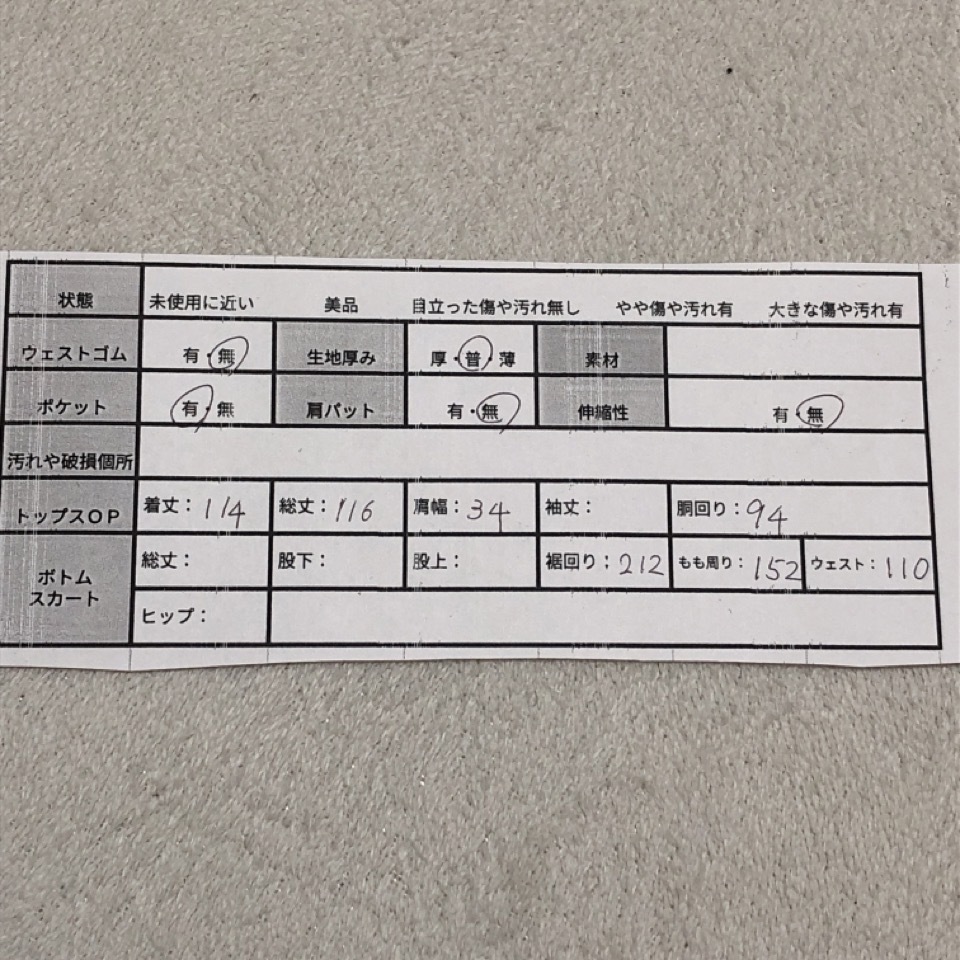 状態 未使用に近い 美品 目立った傷や汚れ無し やや傷や汚れ有 大きな傷や汚れ有
ウェストゴム 有・無 生地厚み 厚・普・薄 素材
ポケット 有・無 肩パット 有・無 伸縮性 有・無
汚れや破損個所
トップスOP 着丈：114 総丈：116 肩幅：34 袖丈： 胴回り：94
ボトム
スカート
総丈： 股下： 股上： 裾回り：212 もも周り：152 ウェスト：110
ヒップ：